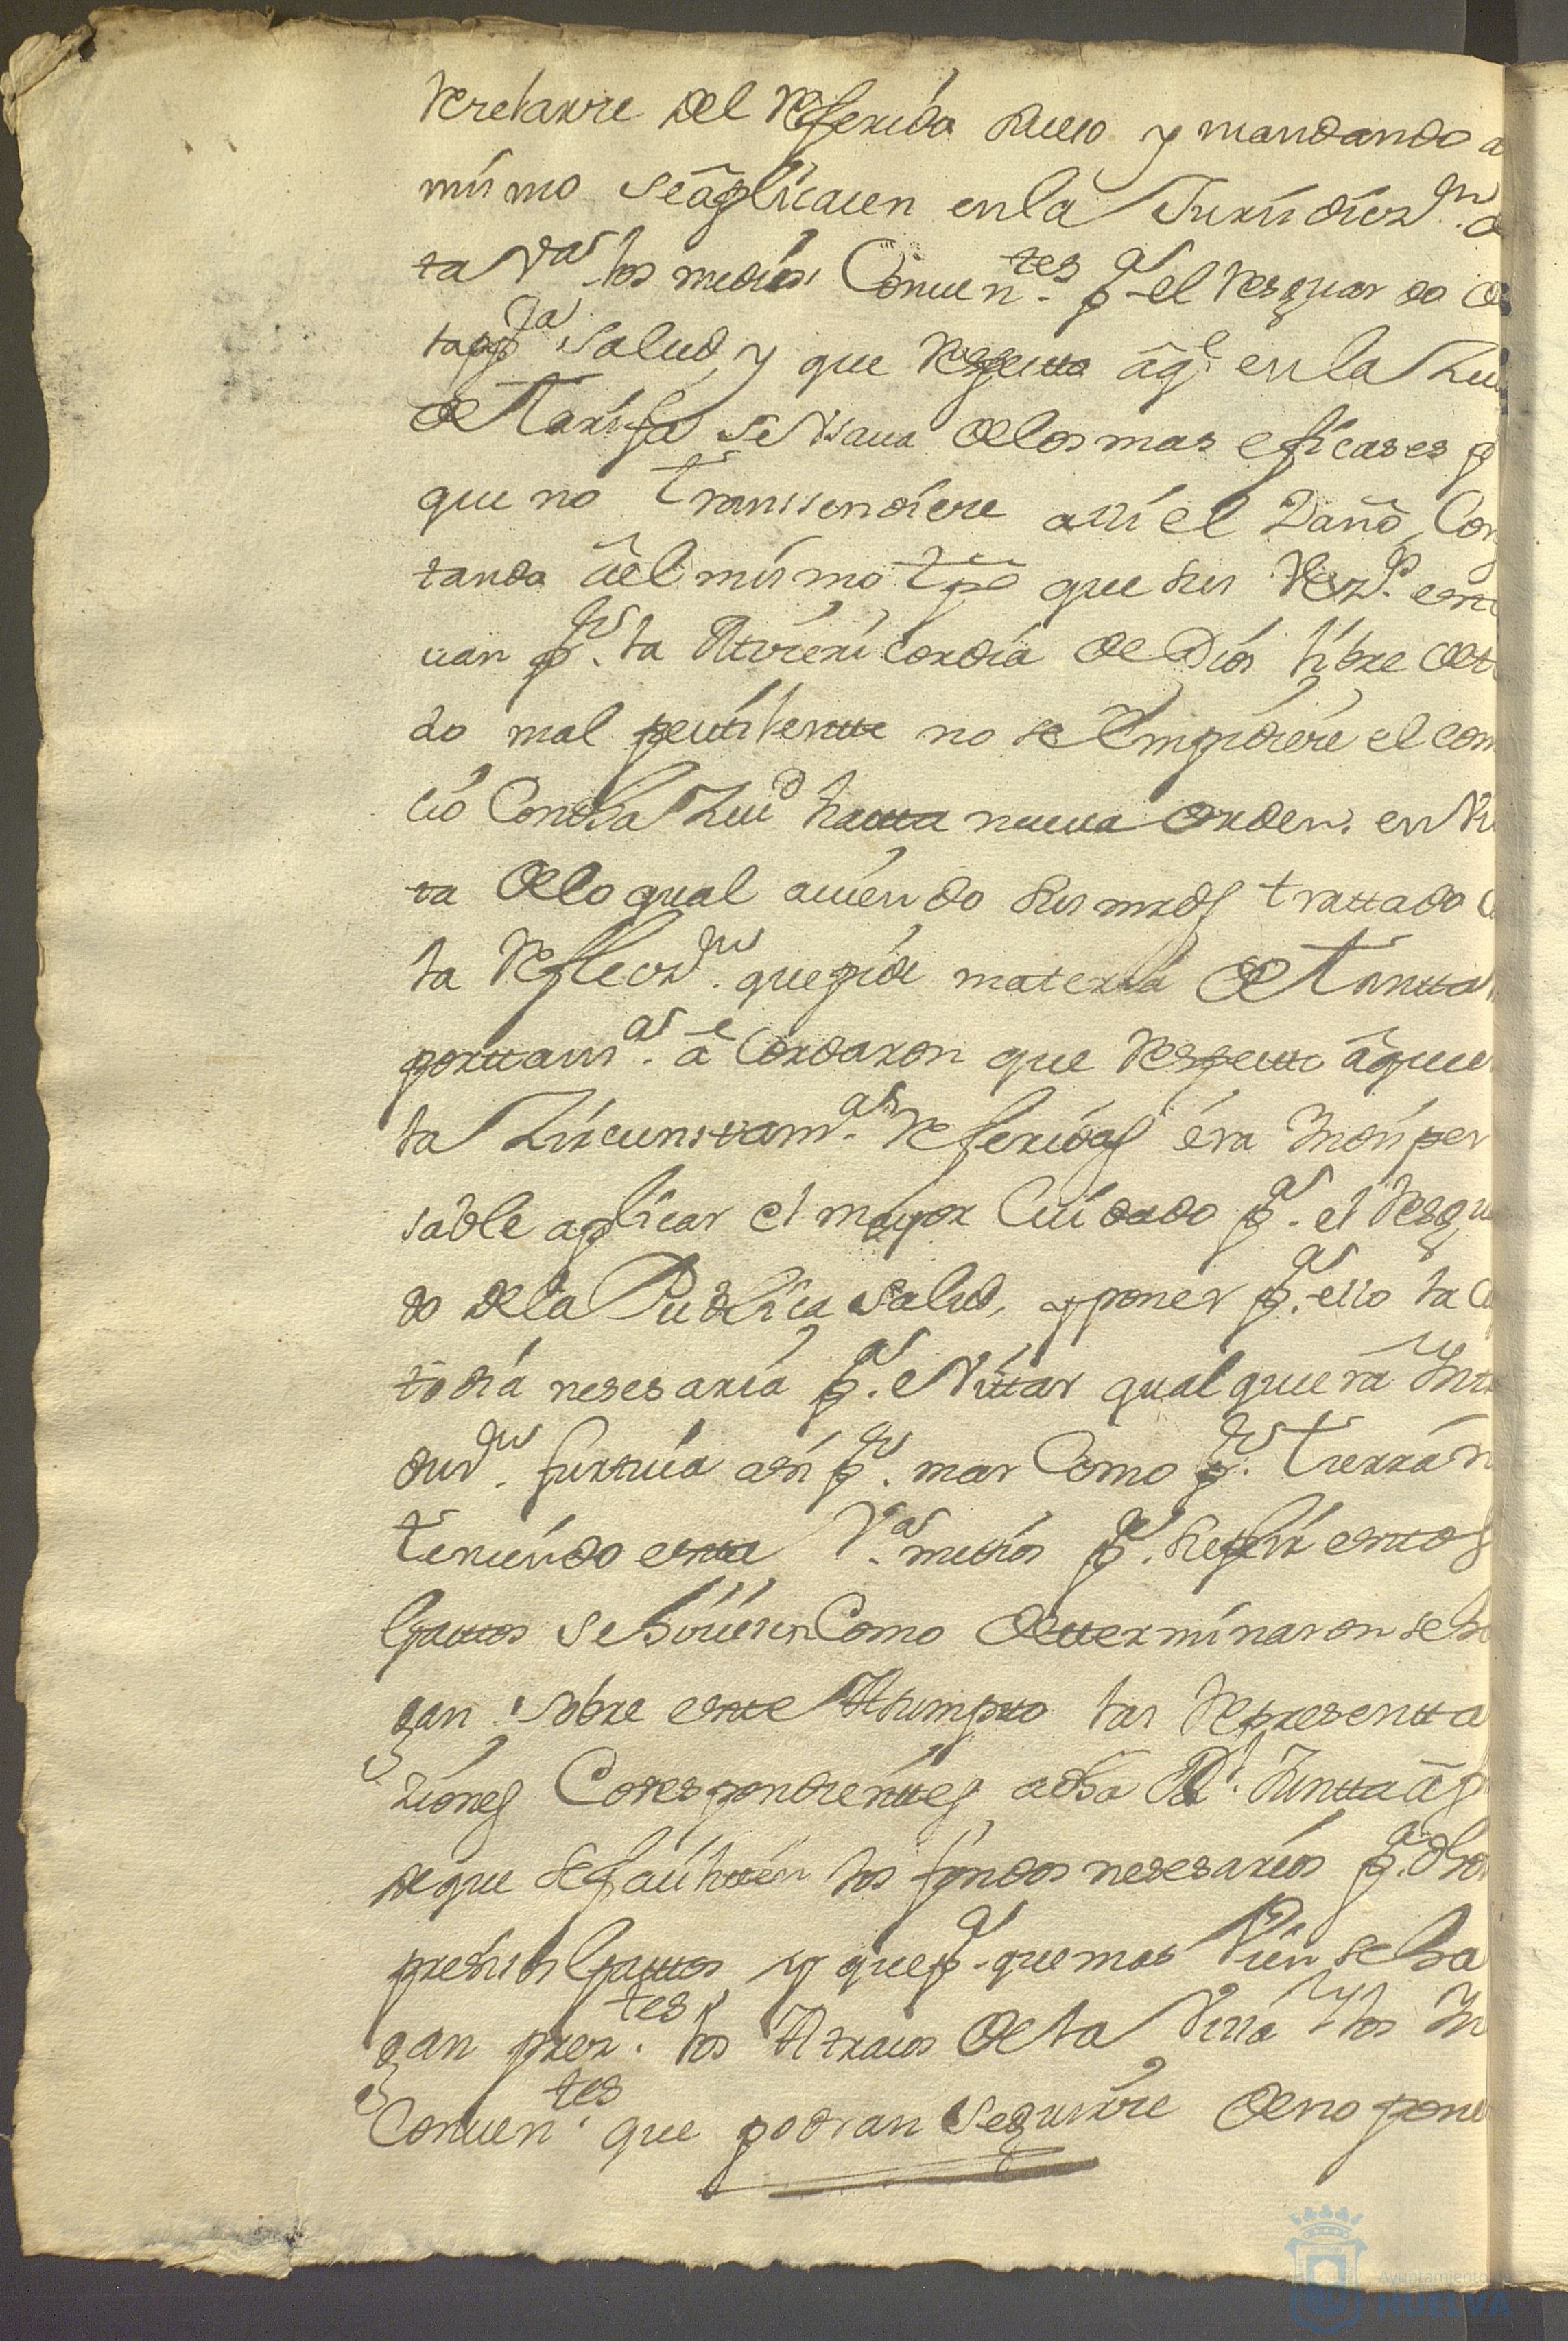 Reselarse del Referido Puerto y mandando a
mismo se âplicasen en la Jurisdizn. d
ta Va. los medios Conuentes. pa. el resguardo de
ta ppca salud, y que respecto âqe. en la Ziu
de Tarifa se Vsaua de los mas eficases p
que no transsendiese assi el Daño, Con
tando âel mismo tpo que sus Vezos. esta
uan por. la Misericordia de Dios libre de to
do mal pestilente no se Ympidiese el com
cio Con dha Ziud hasta nueva orden. en Vis
ta de lo qual auiendo sus mrds trattado
la reflecsn. que pide materia de Tantta
porttansa. âCordaron que respecto âque
la Zircunstanas. referidas era Yndispen
sable aplicar el mayor Cuidado pa. el resgu
do de la Publica Salud, y poner pa. ello la
todia nesesaria pa. eVittar qualquiera Yntr
dusn. furtiua asi por. mar Como por. tierra n
teniendo esta Va. medios pa. suplir estos
Gastos se hisiesen Como Determinaron se h
gan sobre este Asumpto las representta
ziones Corespondienttes a dha Rl. Juntta â
de que se faciliten los fondos nesesarios pa. dhos
presisos Gastos y que pa. que mas Vien se ha
gan prestes. los Atrasos de la Villa y los Yn
Conuentes. que podran seguirse de no pone
Ayuntamiento de
HUELVA